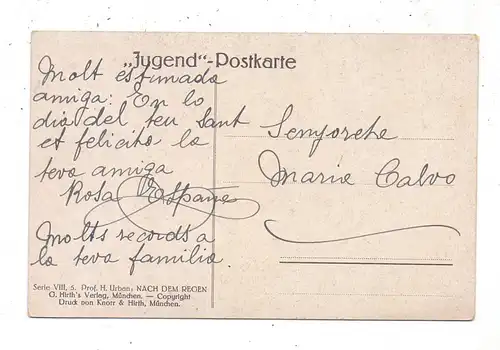 „Jugend“-Postkarte
Molt estimada
amiga: En lo
dia del teu Sant
et felicita la
teva amiga
Rosa Espana
Molts records a
la teva familia.
Senyoreta
Maria Calvo
Serie VIII, 5. Prof. H. Urban: NACH DEM REGEN
G. Hirth's Verlag, München. — Copyright
Druck von Knorr & Hirth, München.